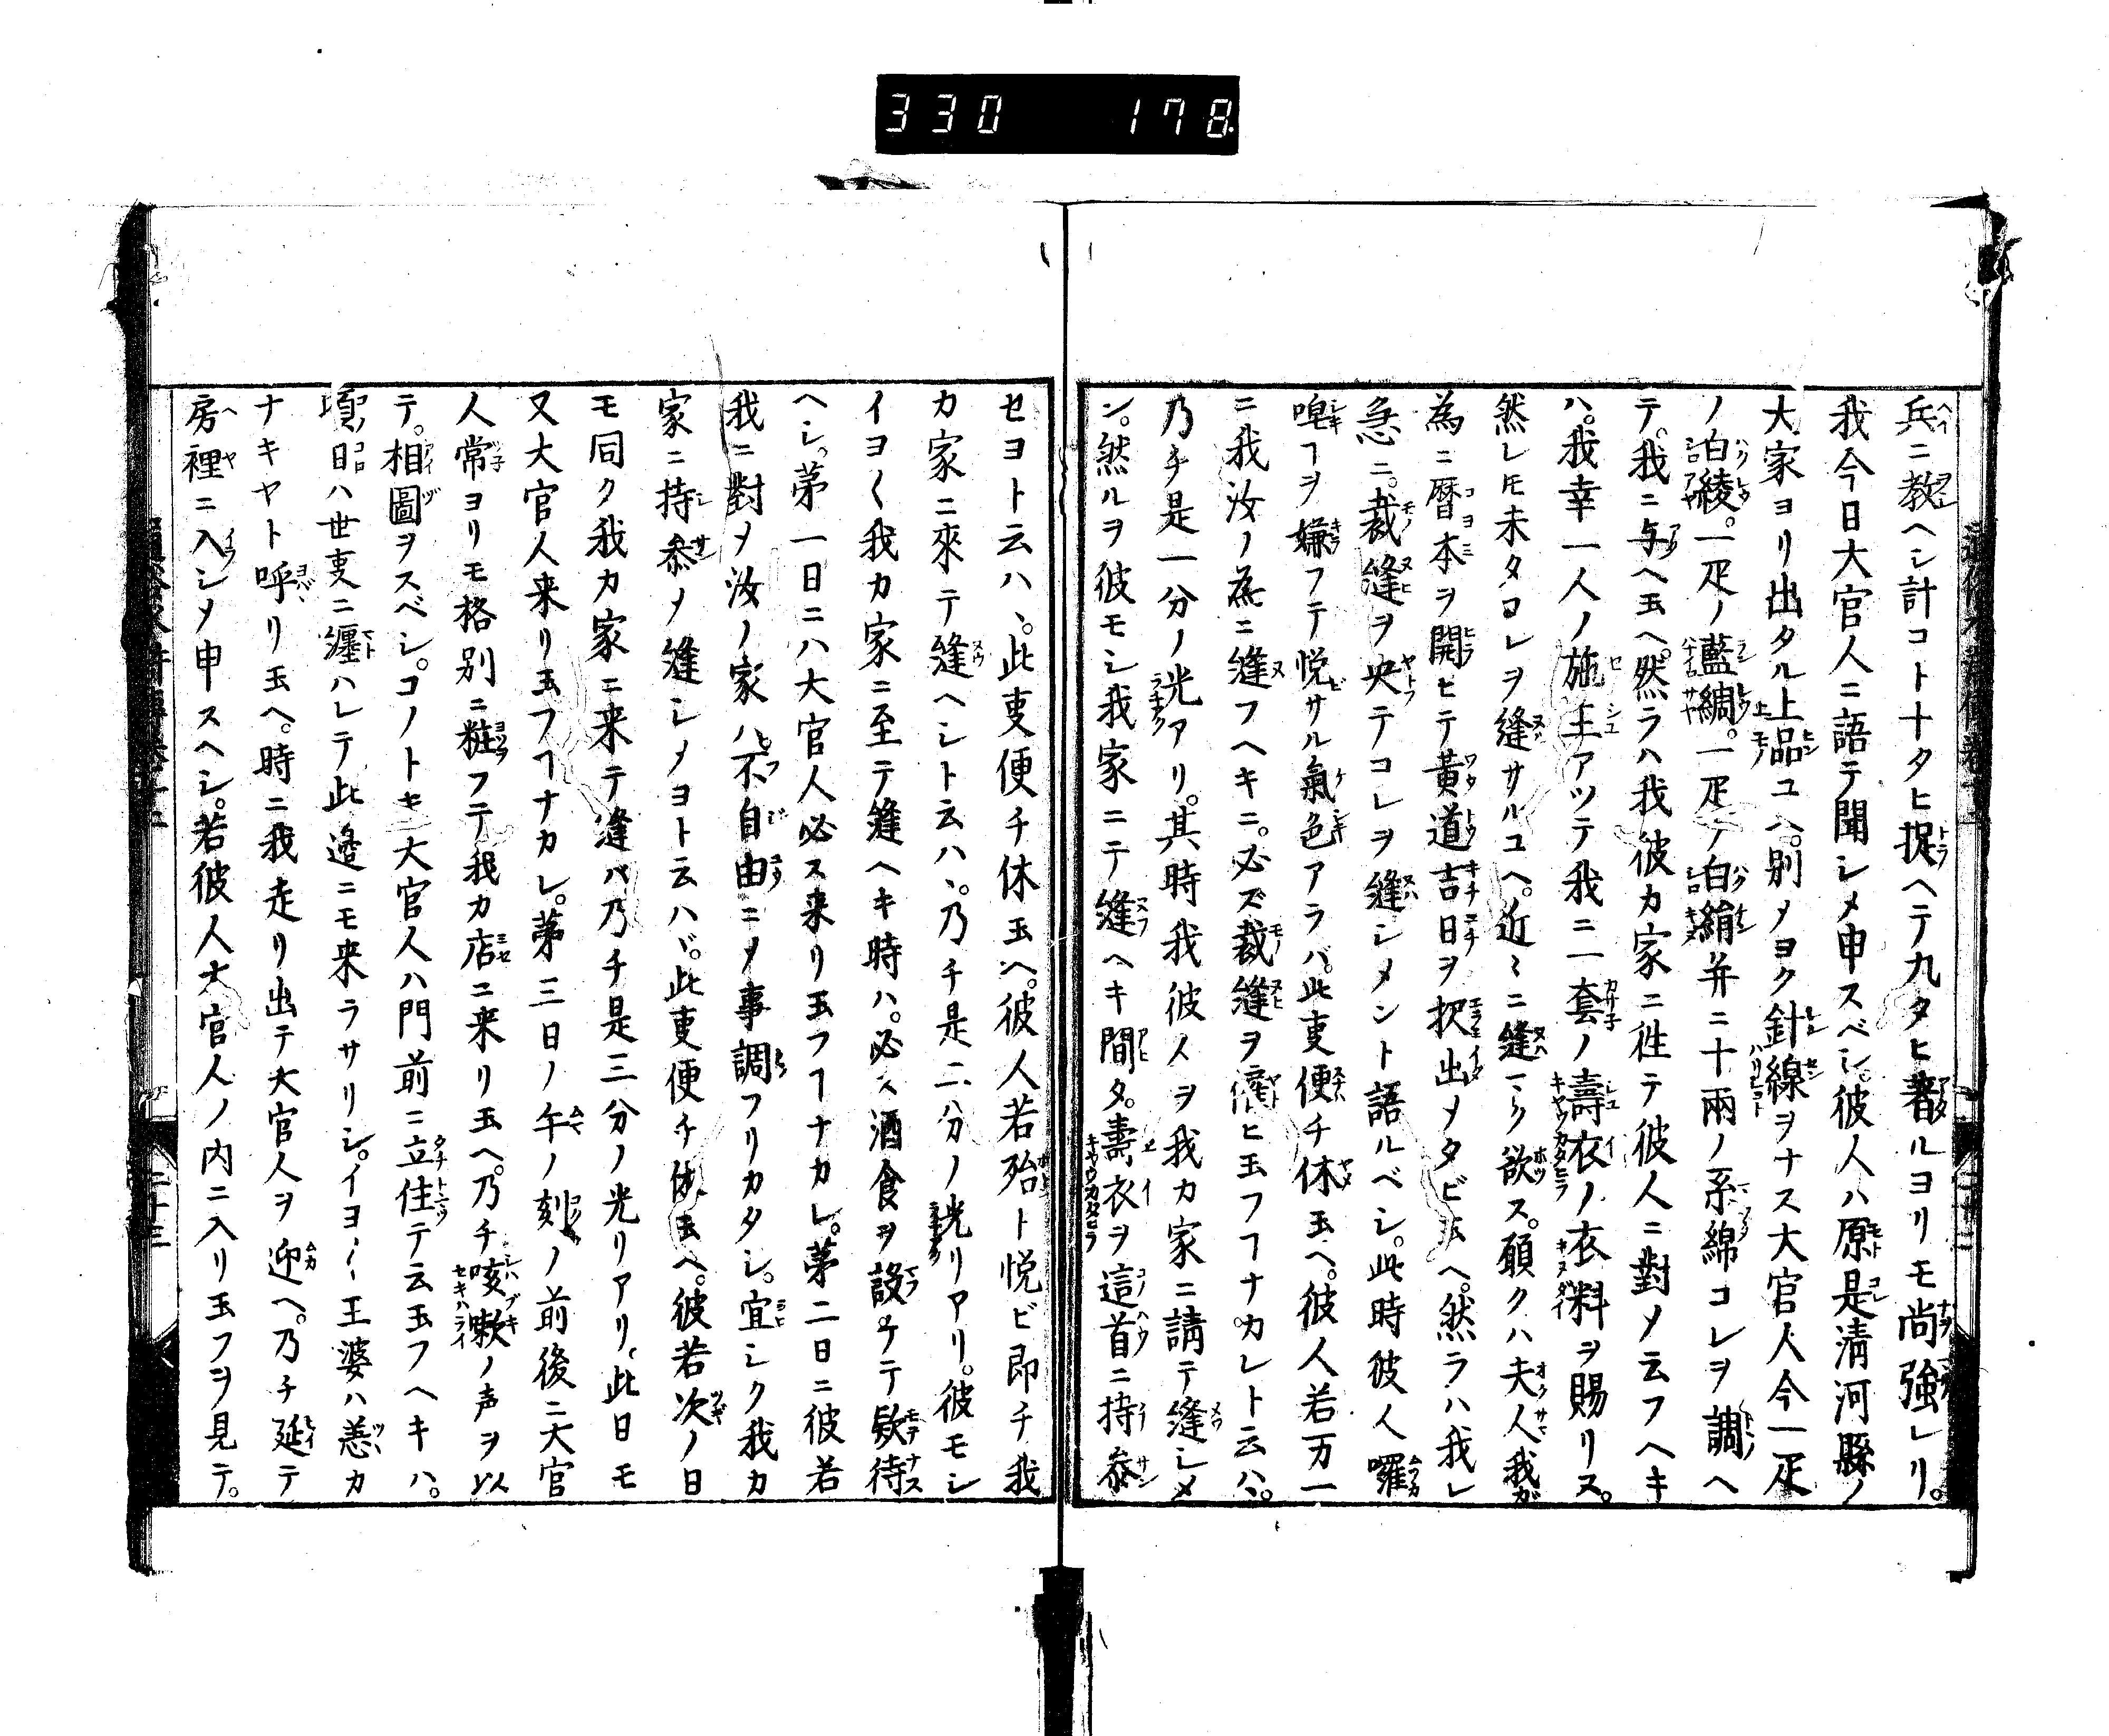 330 178
兵ニ教ヘシ計コト十タヒ捉ヘテ九タヒ着ルヨリモ尚強レリ。
我今日大官人ニ語テ聞シメ申スベシ。彼人ハ原是淸河縣ノ
大家ヨリ出タル上品ユヘ。別メヨク針線ヲナス大官人今一疋
ノ白綾。一疋ノ藍紬。一疋ノ白絹并ニ十兩ノ糸綿コレヲ調ヘ
テ。我ニ与ヘ玉ヘ。然ラハ我彼カ家ニ徃テ彼人ニ對メ云フヘキ
ハ。我幸一人ノ施主アツテ我ニ一套ノ壽衣ノ衣料ヲ賜リヌ。
然レ𪜈未タコレヲ縫サルユヘ。近〻ニ縫ハント欲ス。願クハ夫人我ガ
為ニ暦本ヲ開ヒテ黃道吉日ヲ択出メタビ玉ヘ。然ラハ我レ
急ニ。裁縫ヲ央テコレヲ縫シメント語ルベシ。此時彼人囉
唣ヿヲ嫌フテ悦サル氣色アラバ。此叓便チ休玉ヘ。彼人若万一
ニ我汝ノ為ニ縫フヘキニ。必ズ裁縫ヲ僱ヒ玉フヿナカレト云ハヽ。
乃チ是一分ノ光アリ。其時我彼人ヲ我カ家ニ請テ縫シメ
ン。然ルヲ彼モシ我家ニテ縫ヘキ間タ。壽衣ヲ這首ニ持叅
セヨト云ハヽ。此叓便チ休玉ヘ。彼人若殆ト悦ビ即チ我
カ家ニ來テ縫ヘシト云ハヽ。乃チ是二分ノ光リアリ。彼モシ
イヨ〱我カ家ニ至テ縫ヘキ時ハ。必ス酒食ヲ設ケテ欵待
ヘシ。第一日ニハ大官人必ス来リ玉フヿナカレ。第二日ニ彼若
我ニ對メ汝ノ家ハ不自由ニメ事調フリカタシ。宜シク我カ
家ニ持叅メ縫シメヨト云ハヾ。此叓便チ休玉ヘ。彼若次ノ日
モ同ク我カ家ニ来テ縫バ乃チ是三分ノ光リアリ。此日モ
又大官人来リ玉フヿナカレ。第三日ノ午ノ刻ノ前後ニ大官
人常ヨリモ格別ニ粧フテ我カ店ニ来リ玉ヘ。乃チ咳嗽ノ声ヲ以
テ。相圖ヲスベシ。コノトキ大官人ハ門前ニ立住テ云玉フヘキハ。
頃日ハ世叓ニ纏ハレテ此邉ニモ来ラサリシ。イヨ〱王婆ハ恙カ
ナキヤト呼リ玉ヘ。時ニ我走リ出テ大官人ヲ迎ヘ。乃チ延テ
房裡ニ入シメ申スヘシ。若彼人大官人ノ内ニ入リ玉フヲ見テ。